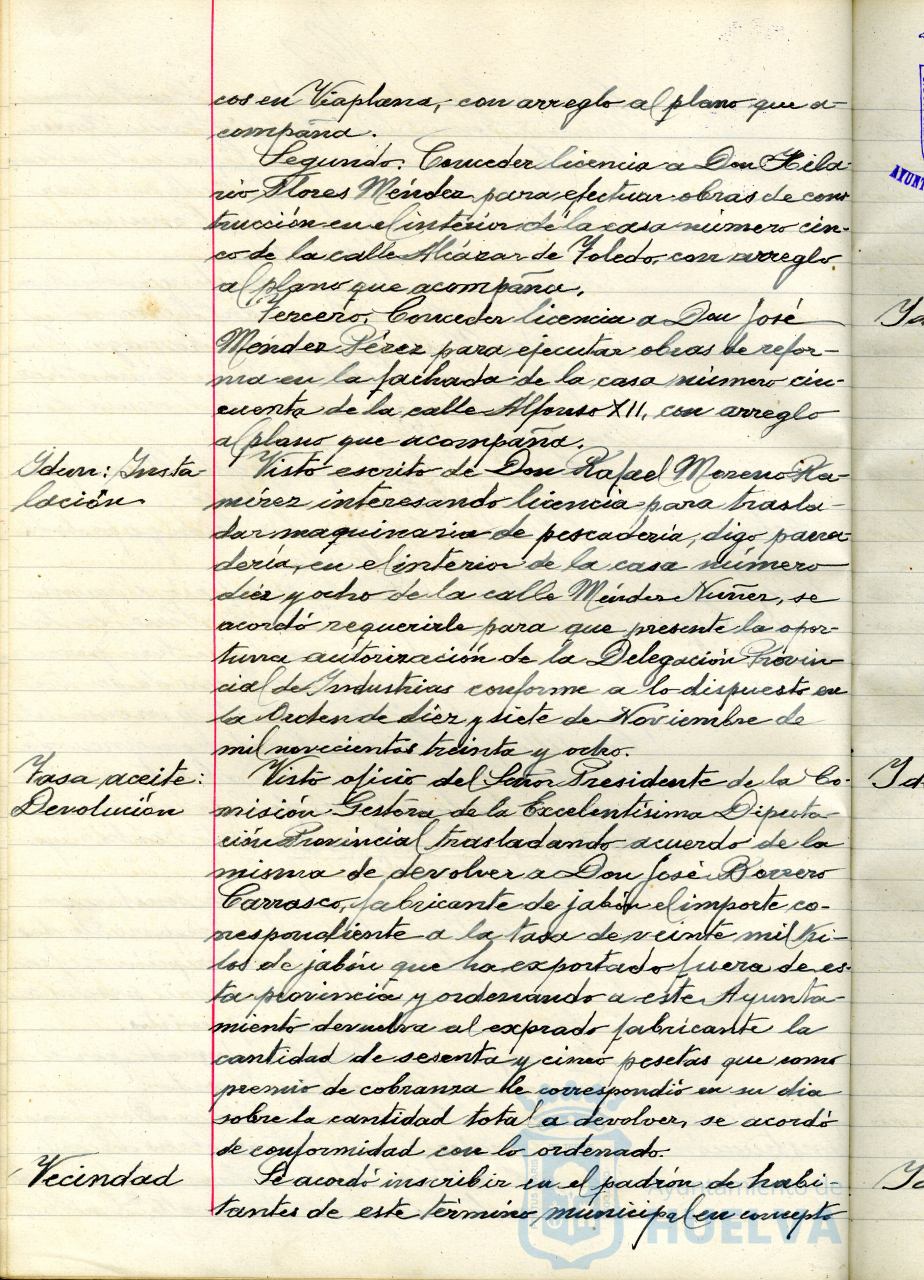 cos en Viaplana, con arreglo al plano que a-
compaña.
Segundo. Conceder licencia a Don Hila-
rio Flores Méndez para efectuar obras de cons
trucción en el interior de la casa número cin-
co de la calle Alcázar de Toledo, con arreglo
al plano que acompaña.
Tercero. Conceder licencia a Don José
Mendez Pérez para ejecutar obras de refor-
ma en la fachada de la casa número cin-
cuenta de la calle Alfonso XII, con arreglo
al plano que acompaña.
Idem: Insta-
lación
Visto escrito de Don Rafael Moreno Ra-
mírez interesando licencia para trasla-
dar maquinaria de pescadería, digo pana-
dería, en el interior de la casa número
diez y ocho de la calle Méndez Nuñez, se
acordó requerirle para que presente la opor-
tuna autorización de la Delegación Provin-
cial de Industrias conforme a lo dispuesto en
la Orden de diez y siete de Noviembre de
mil novecientos treinta y ocho.
Tasa aceite:
Devolución
Visto oficio del Señor Presidente de la Co-
misión Gestora de la Excelentísima Diputa-
ción Provincial trasladando acuerdo de la
misma de devolver a Don José Borrero
Carrasco, fabricante de jabón el importe co-
rrespondiente a la tasa de veinte mil ki-
los de jabón que ha exportado fuera de es-
ta provincia y ordenando a este Ayunta-
miento devuelva al exprado fabricante la
cantidad de sesenta y cinco pesetas que como
premio de cobranza le correspondió en su dia
sobre la cantidad total a devolver, se acordó
de conformidad con lo ordenado.
Vecindad
Se acordó inscribir en el padrón de habi-
tantes de este término municipal en concepto
Ayuntamiento de
HUELVA
AYUNT